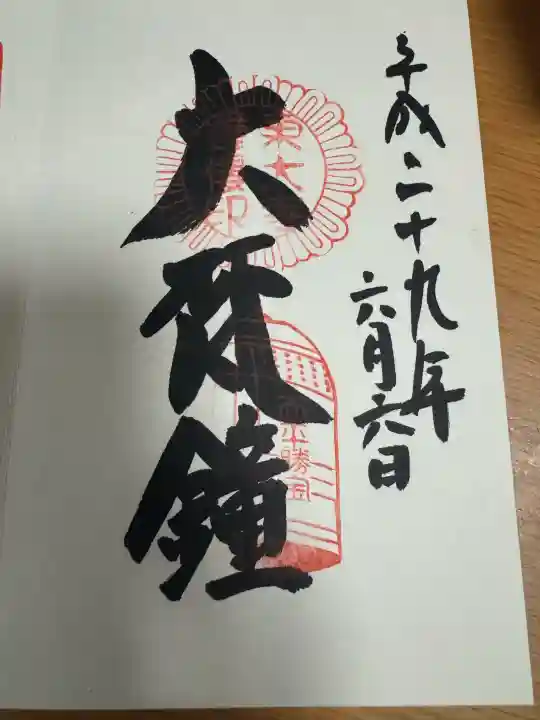 平成二十九年
六月六日
大梵鐘
東大
勝宝